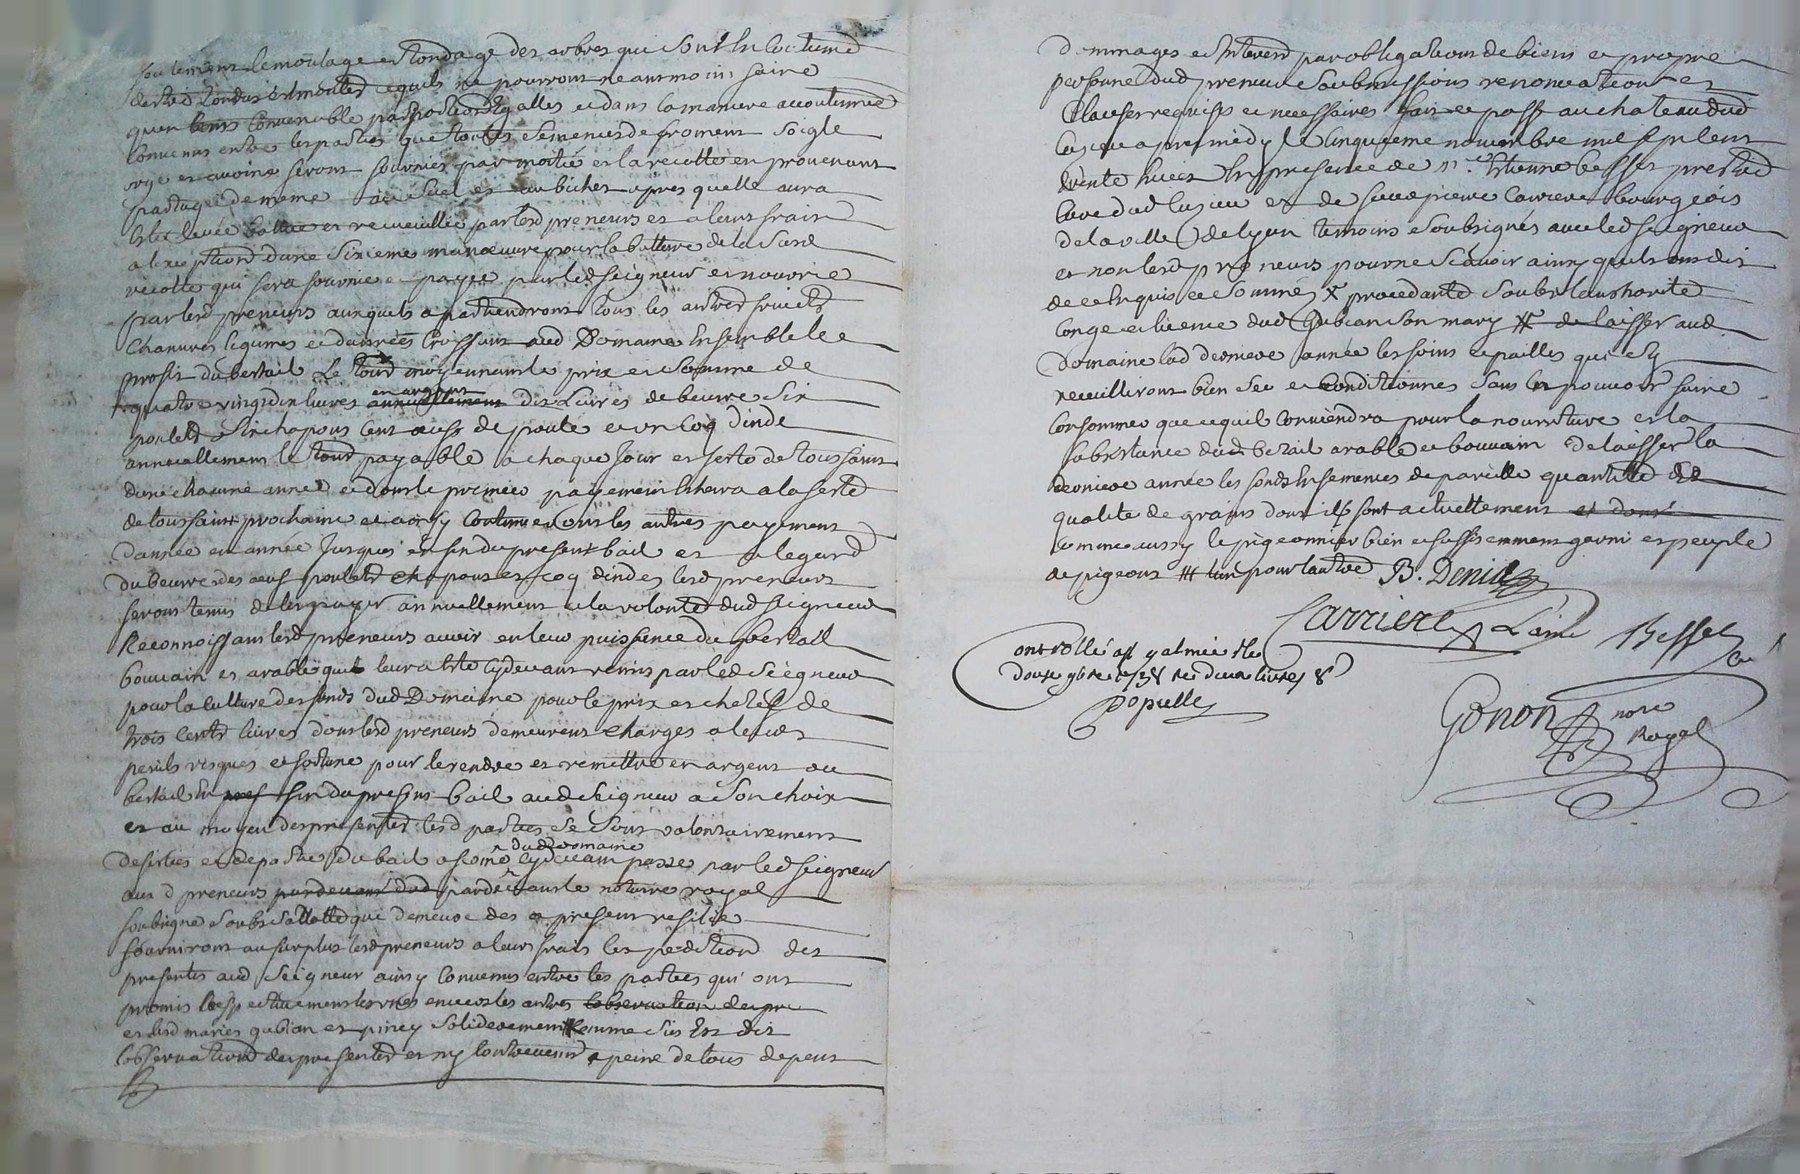 seulement lemondage et tondage des arbres qui sont en coutume
destre tondus et mondes et quils ne pourront neantmoins faire
quen tems convenable par portions Egalles et dans la maniere accoutumée
Convenus entre les parties que toutes semences de froment soigle
orge et avoine seront fournies par moitié et la recolte en provenant
partagée de meme au et au bichet apres quelle aura
este levée battue et recueillie par lesd preneurs et a leurs frais
a lexception dune sixieme manœuvre pour la batture de la susd
recolte qui sera fournie et payée par led seigneur et nourrie
par lesd preneurs auxquels apartiendront tous les autres fruicts
chanvres legumes et danrées croissant aud Domaine Ensemble le
profit du bestail Le tout moyennant le prix et somme de
quatre vingt dix livres en argent annuellement dix Livres de beurre six
poulets six chapons cent œufs de poule et un coq dinde
annuellement le tout payable a chaque jour et feste de toussaint
dune chacune année et dont le premier payement echera a la feste
de toussaint prochaine et ainsy continuer tous les autres payement
dannée en année jusques en fin du present bail et a legard
du beurre des oeufs poulets chapons et coq dindes lesd preneurs
seront tenus de les payer annuellement a la volonté dud seigneur
Reconnoissant lesd preneurs avoir en leur puissance du bestail
bouvain et arable qui leur a esté cy devant remis par led Seigneur
pour la culture des fonds dud Domaine pour le prix et cheptel de
trois cents livres dont lesd preneurs demeurent charges a leurs
perils risques et fortune pour le rendre et remettre en argent ou
bestail En pres fin du present bail aud Seigneur a son choix
et au moyen des presentes lesd parties se sont volontairement
desistées et departies du bail a ferme dud domaine cy devant passé par led Seigneur
aux d preneurs pardevant dud pardevant le notaire royal
soubsigné soubs sa datte qui demeure des a present resilié
fourniront au surplus lesd preneurs a leurs frais lexpedition des
presentes aud Seigneur ainsy convenus entre les parties qui ont
promis respectivement les unes envers les autres lobservation des pre
et lesd mariés gubian et piney solidairement comme sus Est dit
lobservation des presentes et ny contrevenir a peine de tous depens
dommages et Interets par obligations de biens et propre
personne dud preneur soubmissions renonciations et
Clauses requises et necessaires fait et passé au chateau dud
Cuzieu apres midy le cinquieme novembre mil sept cent
trente huict En presence de Mre Estienne besset prestre
Curé dud Cuzieu et de sieur pierre Carriere bourgeois
de la ville de lyon temoins soubsignés avec led seigneur
et non lesd preneurs pour ne sçavoir ainsy quils ont dit
de ce Enquis et sommés X procedante soubs lauthorité
congé et licence dud Gubian son mary X de laisser aud
Domaine lad derniere année les foins et pailles qui sy
recueilliront bien sec et conditionnés sans En pouvoir faire
consommer que ce quil conviendra pour la nourriture et la
subsistance dud betail arable et bouvain de laisser la
derniere année les fonds Ensemences de pareille quantité et
qualité de grains dont ils sont actuellement et dont
comme aussy le pigeonnier bien et suffisemment garni et peuplé
de pigeons # lun pour lautre B. Denis
Carriere Lainé Besset
Curé
Controllé a st galmier le
douze 9bre 1738 Rec deux livres 8s
Popülle
Gonon nore
Royal